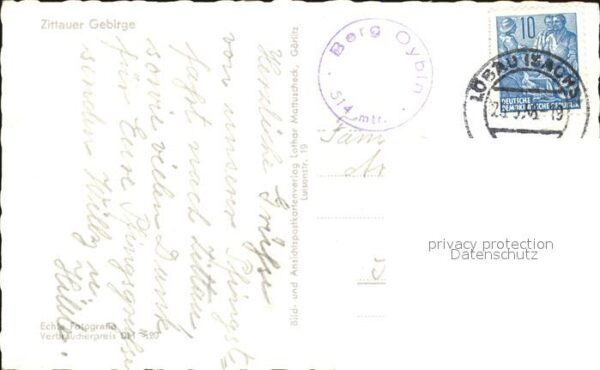 Zittauer Gebirge
Herzliche Grüße
von unserer Pfingst=
fahrt nach Zittau,
sowie vielen Dank
für Eure Pfingstgrüße
senden Willy u.
Echte Fotografie
Verbraucherpreis DM
Bild- und Ansichtspostkartenverlag Lothar Mattuscheck, Görlitz
19
Berg Oybin
514 mtr.
10
DEUTSCHE
DEMOKRATISCHE REPUBLIK
LÖBAU (SACHS)
Fam
privacy protection
Datenschutz